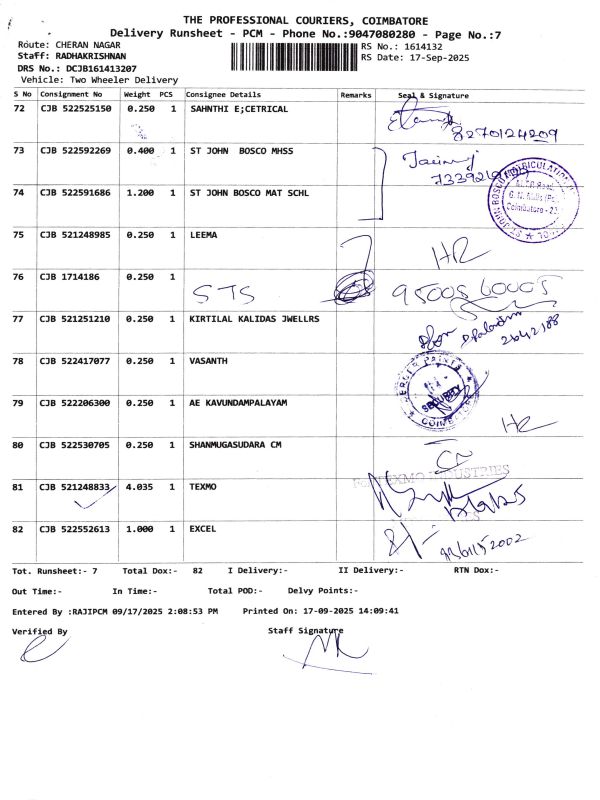 THE PROFESSIONAL COURIERS, COIMBATORE
Delivery Runsheet - PCM - Phone No.:9047080280 - Page No.:7
Route: CHERAN NAGAR
RS No.: 1614132
Staff: RADHAKRISHNAN
RS Date: 17-Sep-2025
DRS No.: DCJB161413207
Vehicle: Two Wheeler Delivery
S No Consignment No Weight PCS Consignee Details Remarks Seal & Signature
72 CJB 522525150 0.250 1 SAHNTHI E;CETRICAL
8270124209
73 CJB 522592269 0.400 1 ST JOHN BOSCO MHSS
74 CJB 522591686 1.200 1 ST JOHN BOSCO MAT SCHL
75 CJB 521248985 0.250 1 LEEMA
HR
76 CJB 1714186 0.250 1
STS 95005 60005
77 CJB 521251210 0.250 1 KIRTILAL KALIDAS JWELLRS
2642188
78 CJB 522417077 0.250 1 VASANTH
SECURITY
79 CJB 522206300 0.250 1 AE KAVUNDAMPALAYAM
HR
80 CJB 522530705 0.250 1 SHANMUGASUDARA CM
TEXMO INDUSTRIES
81 CJB 521248833 4.035 1 TEXMO
82 CJB 522552613 1.000 1 EXCEL
Tot. Runsheet:- 7 Total Dox:- 82 I Delivery:- II Delivery:- RTN Dox:-
Out Time:- In Time:- Total POD:- Delvy Points:-
Entered By :RAJIPCM 09/17/2025 2:08:53 PM Printed On: 17-09-2025 14:09:41
Verified By Staff Signature